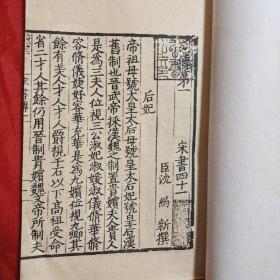 列傳第一　宋書四十一
臣沈　約　新撰
后妃
帝祖母號太皇太后母號皇太后妃號皇后漢
舊制也晉武帝採漢魏之制置貴嬪夫人貴人
是爲三夫人位視三公淑妃淑媛淑儀脩華脩
容脩儀婕妤容華充華是爲九嬪位視九卿其
餘有美人才人中才人爵視千石以下高祖受命
省二才人其餘仍用晉制貴嬪魏文帝所制夫